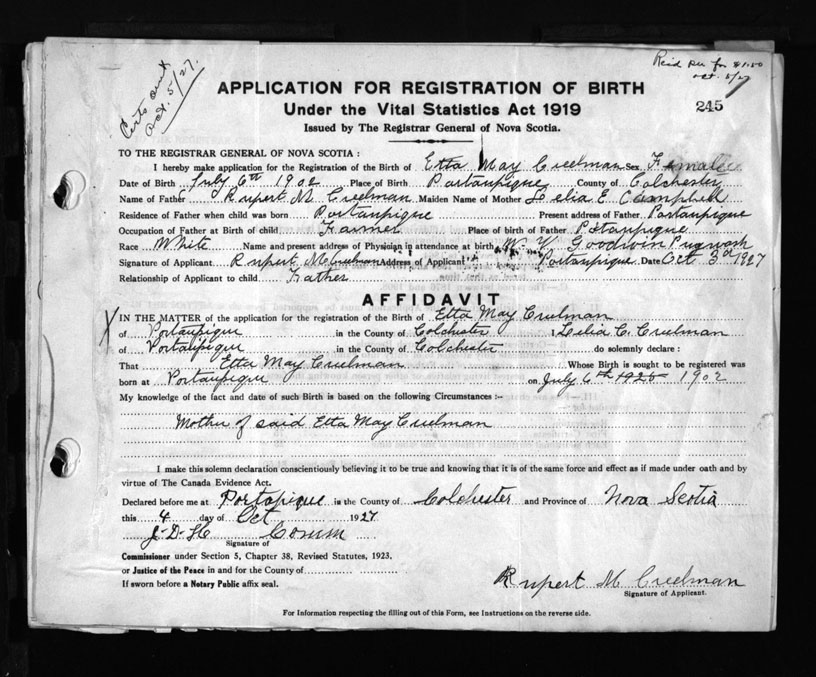 Oct. 5/27.
Oct. 5/27
APPLICATION FOR REGISTRATION OF BIRTH
Under the Vital Statistics Act 1919
245
Issued by The Registrar General of Nova Scotia.
TO THE REGISTRAR GENERAL OF NOVA SCOTIA :
I hereby make application for the Registration of the Birth of Etta May Creelman Sex Female
Date of Birth July 6th 1902 Place of Birth Portaupique County of Colchester
Name of Father Rupert M Creelman Maiden Name of Mother Lelia E. Campbell
Residence of Father when child was born Portaupique Present address of Father Portaupique
Occupation of Father at Birth of child Farmer Place of birth of Father Portaupique
Race White Name and present address of Physician in attendance at birth W. Y. Goodwin Pugwash
Signature of Applicant Rupert M Creelman Address of Applicant Portaupique Date Oct 3rd 1927
Relationship of Applicant to child Father
AFFIDAVIT
X IN THE MATTER of the application for the registration of the Birth of Etta May Creelman
of Portaupique in the County of Colchester I Lelia C. Creelman
of Portaupique in the County of Colchester do solemnly declare :
That Etta May Creelman Whose Birth is sought to be registered was
born at Portaupique on July 6th 1902
My knowledge of the fact and date of such Birth is based on the following Circumstances :-
Mother of said Etta May Creelman
I make this solemn declaration conscientiously believing it to be true and knowing that it is of the same force and effect as if made under oath and by
virtue of The Canada Evidence Act.
Declared before me at Portapique in the County of Colchester and Province of Nova Scotia
this 4 day of Oct 1927
Signature of
Commissioner under Section 5, Chapter 38, Revised Statutes, 1923.
or Justice of the Peace in and for the County of
If sworn before a Notary Public affix seal.
Rupert M Creelman
Signature of Applicant.
For Information respecting the filling out of this Form, see Instructions on the reverse side.